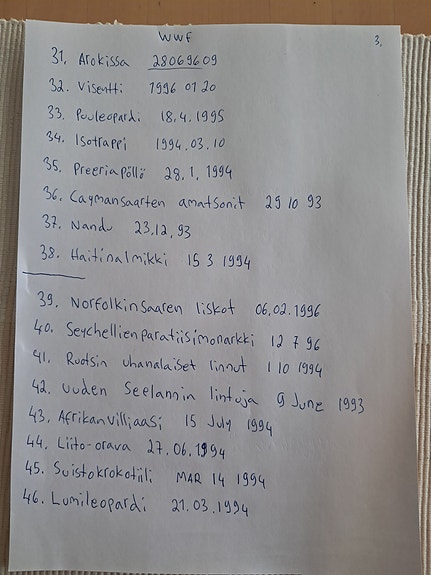 WWF
3.
31. Arokissa 28069609
32. Visentti 1996 01 20
33. Puuleopardi 18.4.1995
34. Isotrappi 1994.03.10
35. Preeriapöllö 28.1.1994
36. Caymansaarten amatsonit 29 10 93
37. Nandu 23.12.93
38. Haitinalmikki 15 3 1994
39. Norfolkinsaaren liskot 06.02.1996
40. Seychellienparatiisimonarkki 12 7 96
41. Ruotsin uhanalaiset linnut 1 10 1994
42. Uuden Seelannin lintuja 9 June 1993
43. Afrikanvilliaasi 15 July 1994
44. Liito-orava 27.06.1994
45. Suistokrokotiili MAR 14 1994
46. Lumileopardi 21.03.1994